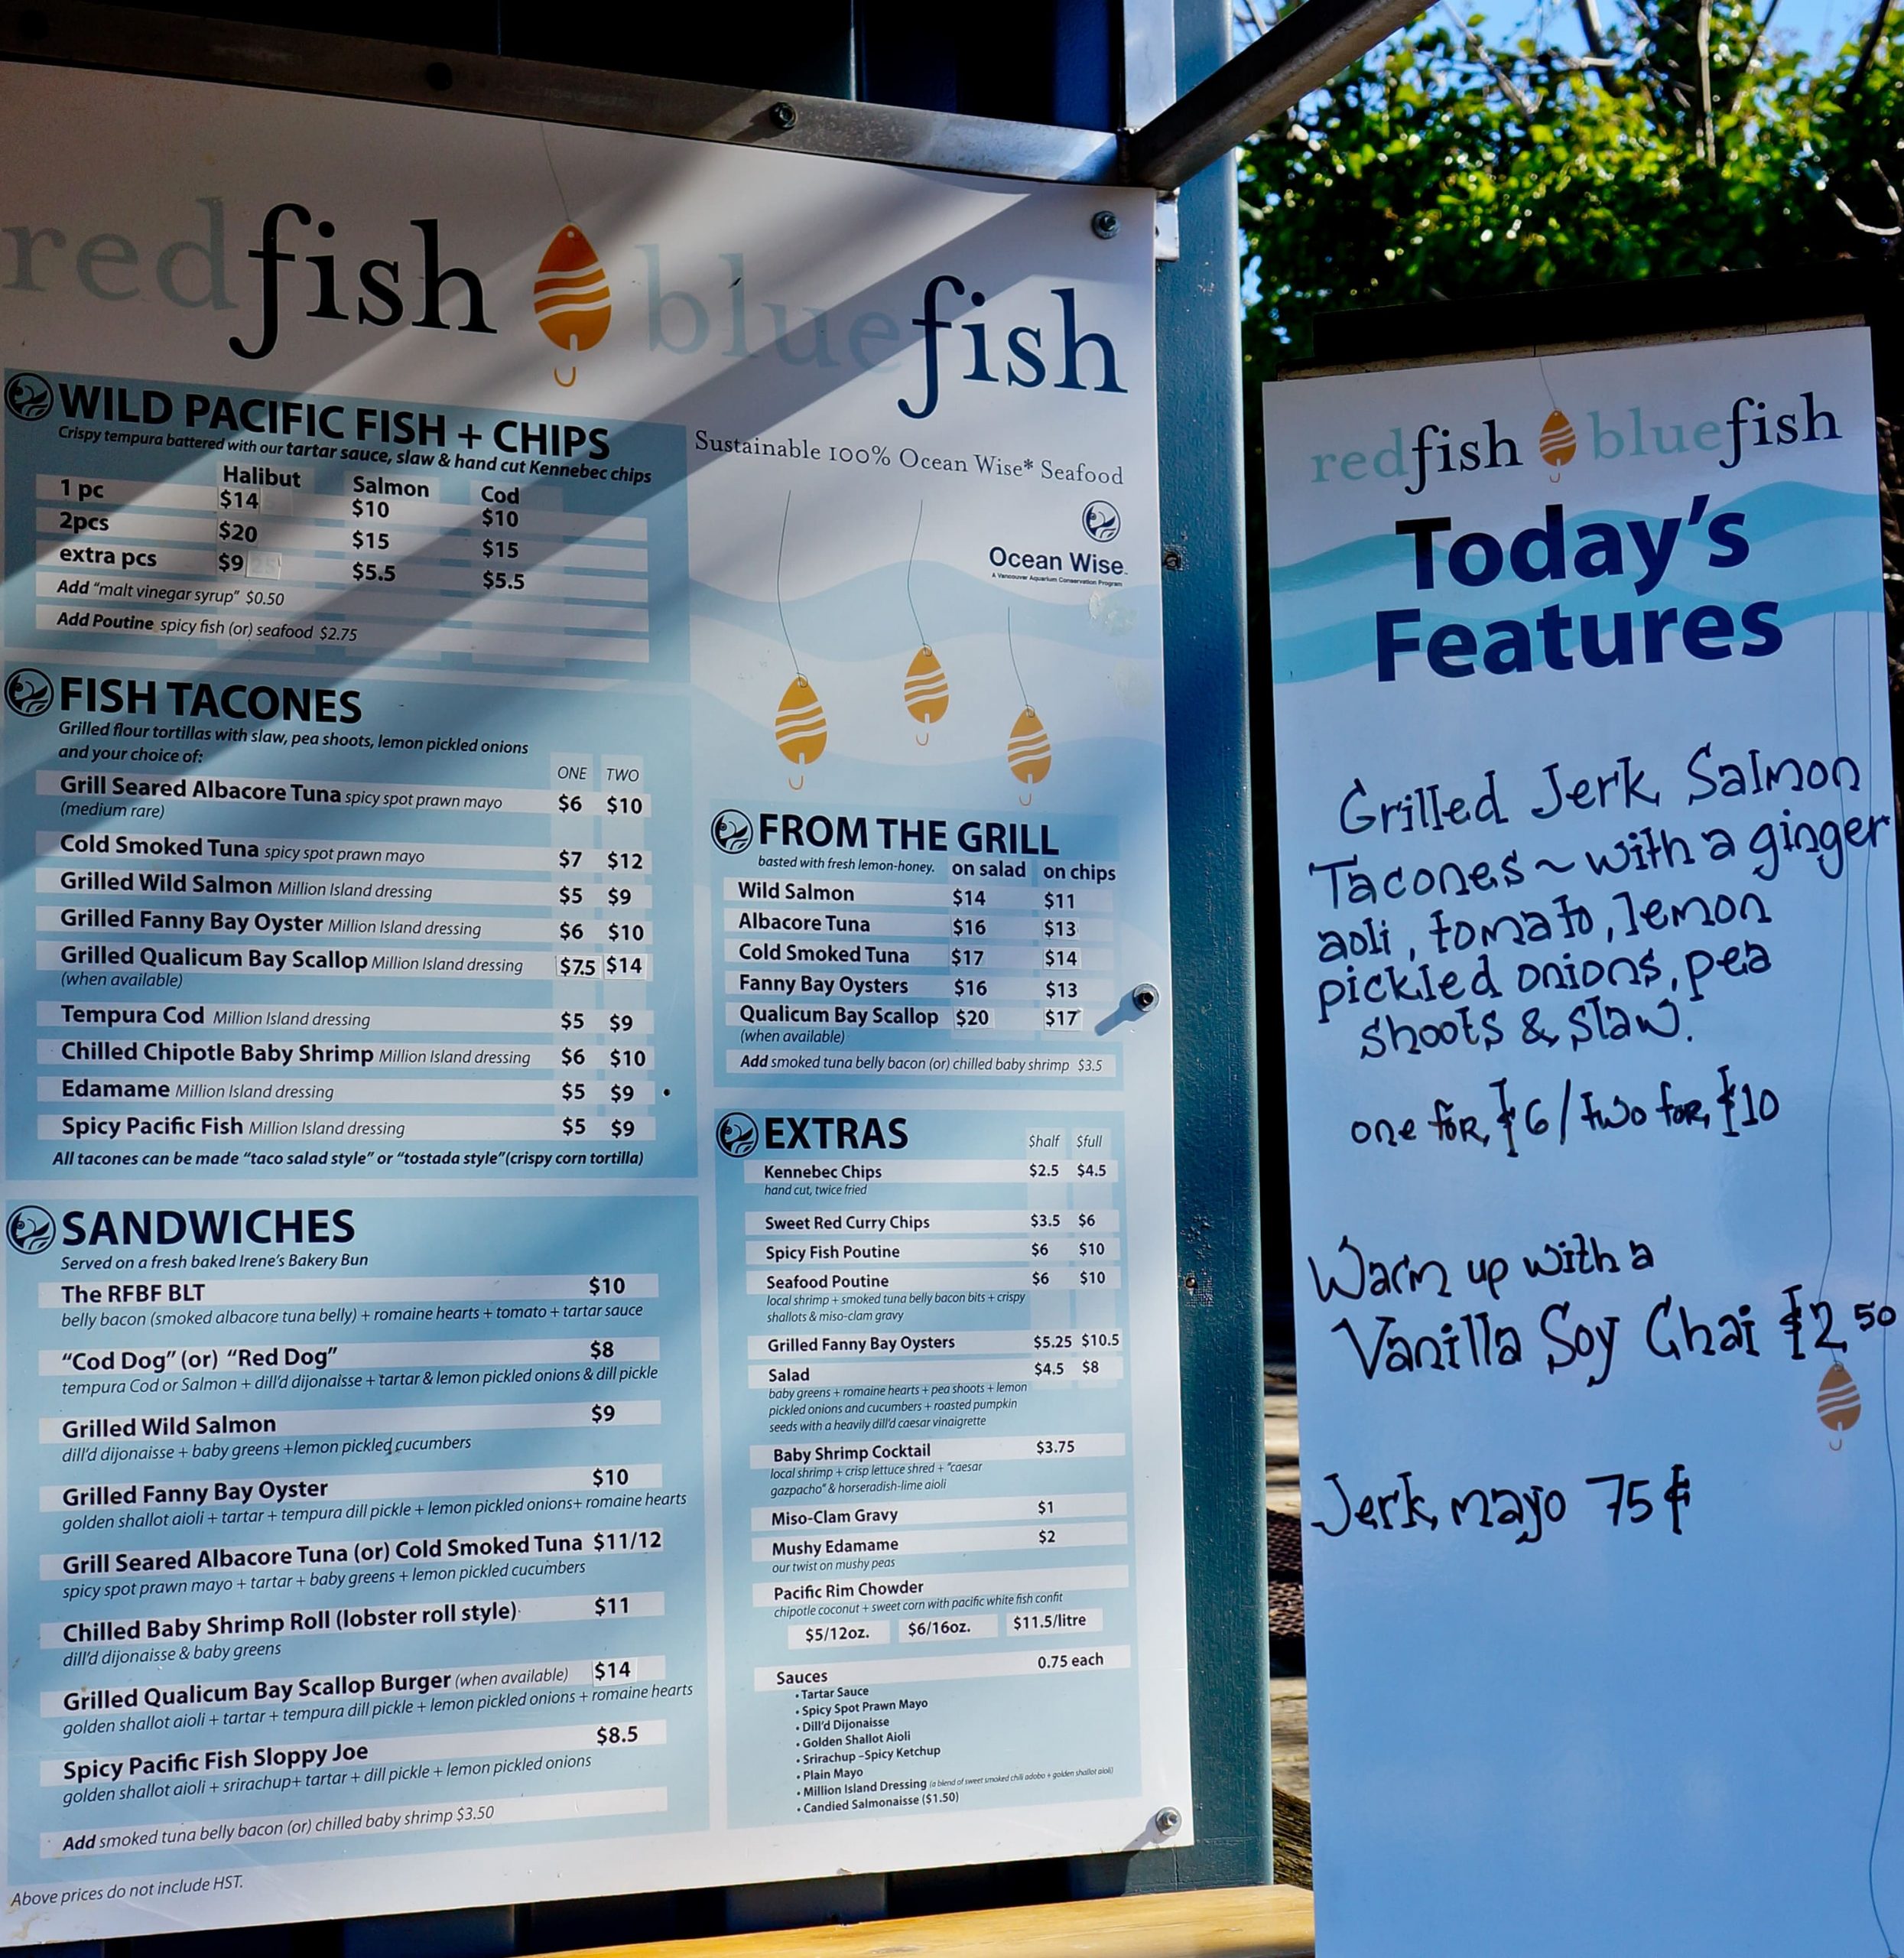 redfish bluefish
WILD PACIFIC FISH + CHIPS
Crispy tempura battered with our tartar sauce, slaw & hand cut Kennebec chips
Halibut Salmon Cod
1 pc $14 $10 $10
2pcs $20 $15 $15
extra pcs $9 $5.5 $5.5
Add "malt vinegar syrup" $0.50
Add Poutine spicy fish (or) seafood $2.75
FISH TACONES
Grilled flour tortillas with slaw, pea shoots, lemon pickled onions
and your choice of:
ONE TWO
Grill Seared Albacore Tuna spicy spot prawn mayo $6 $10
(medium rare)
Cold Smoked Tuna spicy spot prawn mayo $7 $12
Grilled Wild Salmon Million Island dressing $5 $9
Grilled Fanny Bay Oyster Million Island dressing $6 $10
Grilled Qualicum Bay Scallop Million Island dressing $7.5 $14
(when available)
Tempura Cod Million Island dressing $5 $9
Chilled Chipotle Baby Shrimp Million Island dressing $6 $10
Edamame Million Island dressing $5 $9
Spicy Pacific Fish Million Island dressing $5 $9
All tacones can be made "taco salad style" or "tostada style"(crispy corn tortilla)
SANDWICHES
Served on a fresh baked Irene's Bakery Bun
The RFBF BLT $10
belly bacon (smoked albacore tuna belly) + romaine hearts + tomato + tartar sauce
"Cod Dog" (or) "Red Dog" $8
tempura Cod or Salmon + dill'd dijonaisse + tartar & lemon pickled onions & dill pickle
Grilled Wild Salmon $9
dill'd dijonaisse + baby greens +lemon pickled cucumbers
Grilled Fanny Bay Oyster $10
golden shallot aioli + tartar + tempura dill pickle + lemon pickled onions+ romaine hearts
Grill Seared Albacore Tuna (or) Cold Smoked Tuna $11/12
spicy spot prawn mayo + tartar + baby greens + lemon pickled cucumbers
Chilled Baby Shrimp Roll (lobster roll style) $11
dill'd dijonaisse & baby greens
Grilled Qualicum Bay Scallop Burger (when available) $14
golden shallot aioli + tartar + tempura dill pickle + lemon pickled onions + romaine hearts
Spicy Pacific Fish Sloppy Joe $8.5
golden shallot aioli + srirachup+ tartar + dill pickle + lemon pickled onions
Add smoked tuna belly bacon (or) chilled baby shrimp $3.50
Above prices do not include HST.
Sustainable 100% Ocean Wise* Seafood
Ocean Wise
A Vancouver Aquarium Conservation Program
FROM THE GRILL
basted with fresh lemon-honey. on salad on chips
Wild Salmon $14 $11
Albacore Tuna $16 $13
Cold Smoked Tuna $17 $14
Fanny Bay Oysters $16 $13
Qualicum Bay Scallop $20 $17
(when available)
Add smoked tuna belly bacon (or) chilled baby shrimp $3.5
EXTRAS
$half $full
Kennebec Chips $2.5 $4.5
hand cut, twice fried
Sweet Red Curry Chips $3.5 $6
Spicy Fish Poutine $6 $10
Seafood Poutine $6 $10
local shrimp + smoked tuna belly bacon bits + crispy
shallots & miso-clam gravy
Grilled Fanny Bay Oysters $5.25 $10.5
Salad $4.5 $8
baby greens + romaine hearts + pea shoots + lemon
pickled onions and cucumbers + roasted pumpkin
seeds with a heavily dill'd caesar vinaigrette
Baby Shrimp Cocktail $3.75
local shrimp + crisp lettuce shred + "caesar
gazpacho" & horseradish-lime aioli
Miso-Clam Gravy $1
Mushy Edamame $2
our twist on mushy peas
Pacific Rim Chowder
chipotle coconut + sweet corn with pacific white fish confit
$5/12oz. $6/16oz. $11.5/litre
Sauces 0.75 each
• Tartar Sauce
• Spicy Spot Prawn Mayo
• Dill'd Dijonaisse
• Golden Shallot Aioli
• Srirachup –Spicy Ketchup
• Plain Mayo
• Million Island Dressing (a blend of sweet smoked chili adobo + golden shallot aioli)
• Candied Salmonaisse ($1.50)
redfish bluefish
Today's
Features
Grilled Jerk Salmon
Tacones ~ with a ginger
aoli, tomato, lemon
pickled onions, pea
shoots & slaw.
one for $6 / two for $10
Warm up with a
Vanilla Soy Chai $2 50
Jerk mayo 75¢